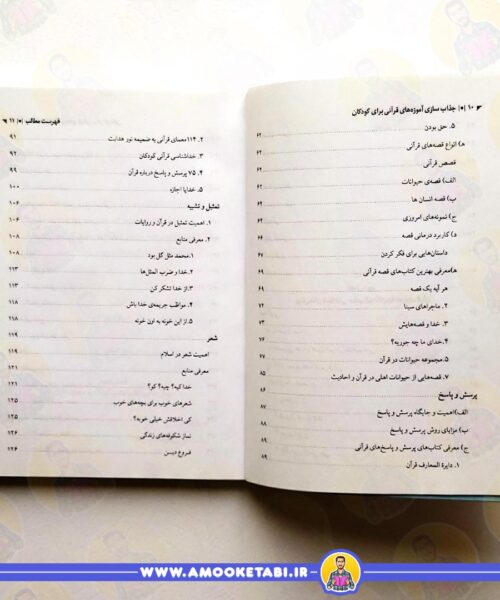 ۱۰ |●| جذاب سازی آموزه‌های قرآنی برای کودکان
۵. حق بودن ۶۲
ه) انواع قصه‌های قرآنی ۶۲
قصص قرآنی
الف) قصه‌ی حیوانات ۶۲
ب) قصه انسان ها ۶۲
ج) نمونه‌های امروزی ۶۲
د) کاربرد درمانی قصه ۶۶
داستان‌هایی برای فکر کردن ۶۷
ه) معرفی بهترین کتاب‌های قصه قرآنی ۶۹
هر آیه یک قصه ۶۹
۲. ماجراهای سینا ۷۲
۳. خدا و قصه‌هایش ۷۳
۴. خدای ما چه جوریه؟ ۷۵
۵. مجموعه حیوانات در قرآن ۷۷
۷. قصه‌هایی از حیوانات اهلی در قرآن و احادیث ۸۵
پرسش و پاسخ ۸۶
الف) اهمیت و جایگاه پرسش و پاسخ ۸۷
ب) مزایای روش پرسش و پاسخ ۸۸
ج) معرفی کتاب‌های پرسش و پاسخ‌های قرآنی ۸۹
۱. دایرة المعارف قرآن ۸۹
فهرست مطالب |●| ۱۱
۲. ۱۱۴ معمای قرآنی به ضمیمه نور هدایت ۹۱
۳. خداشناسی قرآنی کودکان ۹۲
۴. ۷۵ پرسش و پاسخ درباره قرآن ۹۹
۵. خدایا اجازه ۱۰۰
تمثیل و تشبیه ۱۰۶
۱. اهمیت تمثیل در قرآن و روایات ۱۰۶
۲. معرفی منابع ۱۰۸
۱. محمد مثل گل بود ۱۰۸
۲. خدا و ضرب المثل‌ها ۱۱۳
۳. از خدا تشکر کن ۱۱۳
۴. مواظب جریمه‌ی خدا باش ۱۱۸
۵. از این خونه به اون خونه ۱۱۸
شعر ۱۱۹
اهمیت شعر در اسلام ۱۱۹
معرفی منابع ۱۲۱
خدا کیه؟ چیه؟ کو؟ ۱۲۱
شعرهای خوب برای بچه‌های خوب ۱۲۵
کی اخلاقش خیلی خوبه؟ ۱۲۵
نماز شکوفه‌های زندگی ۱۲۶
فروع دین ۱۲۶
WWW.AMOOKETABI.IR